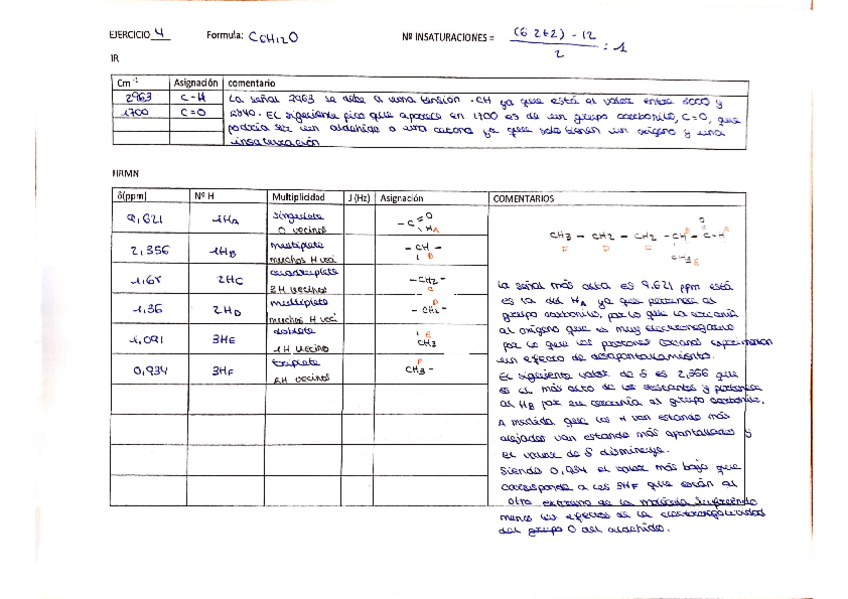 EJERCICIO 4 Formula: C6H12O Nº INSATURACIONES = (6·2+2) - 12 / 2 : 1
IR
Cm-1 Asignación comentario
2963 C-H La señal 2963 se debe a una tensión -CH ya que está el valor entre 3000 y
1700 C=O 2840. El siguiente pico que aparece en 1700 es de un grupo carbonilo, C=O, que
podría ser un aldehido o una cetona ya que solo tienen un oxígeno y una
insaturación
HRMN
δ(ppm) Nº H Multiplicidad J (Hz) Asignación COMENTARIOS
9,621 1HA singulete
0 vecinos
2,356 1HB multiplete
muchos H veci
-CH-
2HC cuadruplete
3H vecinos
-CH2-
1,36 2HD multiplete
muchos H veci
-CH2-
1,091 3HE doblete
1H vecino
CH3
0,934 3HF triplete
2H vecinos
CH3-
CH3 - CH2 - CH2 - CH - C-H
F D C B A
CH3 E
La señal más alta es 9.621 ppm está
es la del HA ya que pertenece al
grupo carbonilo, por lo que la cercanía
al oxígeno que es muy electronegativo
por lo que los protones cercanos experimentan
un efecto de desapantallamiento.
El siguiente valor de δ es 2,356 que
es el más alto de los restantes y pertenece
al HB por su cercanía al grupo carbonilo.
A medida que los H van estando más
alejados van estando más apantallados y
el valor de δ disminuye.
Siendo 0,934 el valor más bajo que
corresponde a los 3HF que están al
otro extremo de la molécula sufriendo
menos los efectos de la electronegatividad
del grupo O del aldehido.